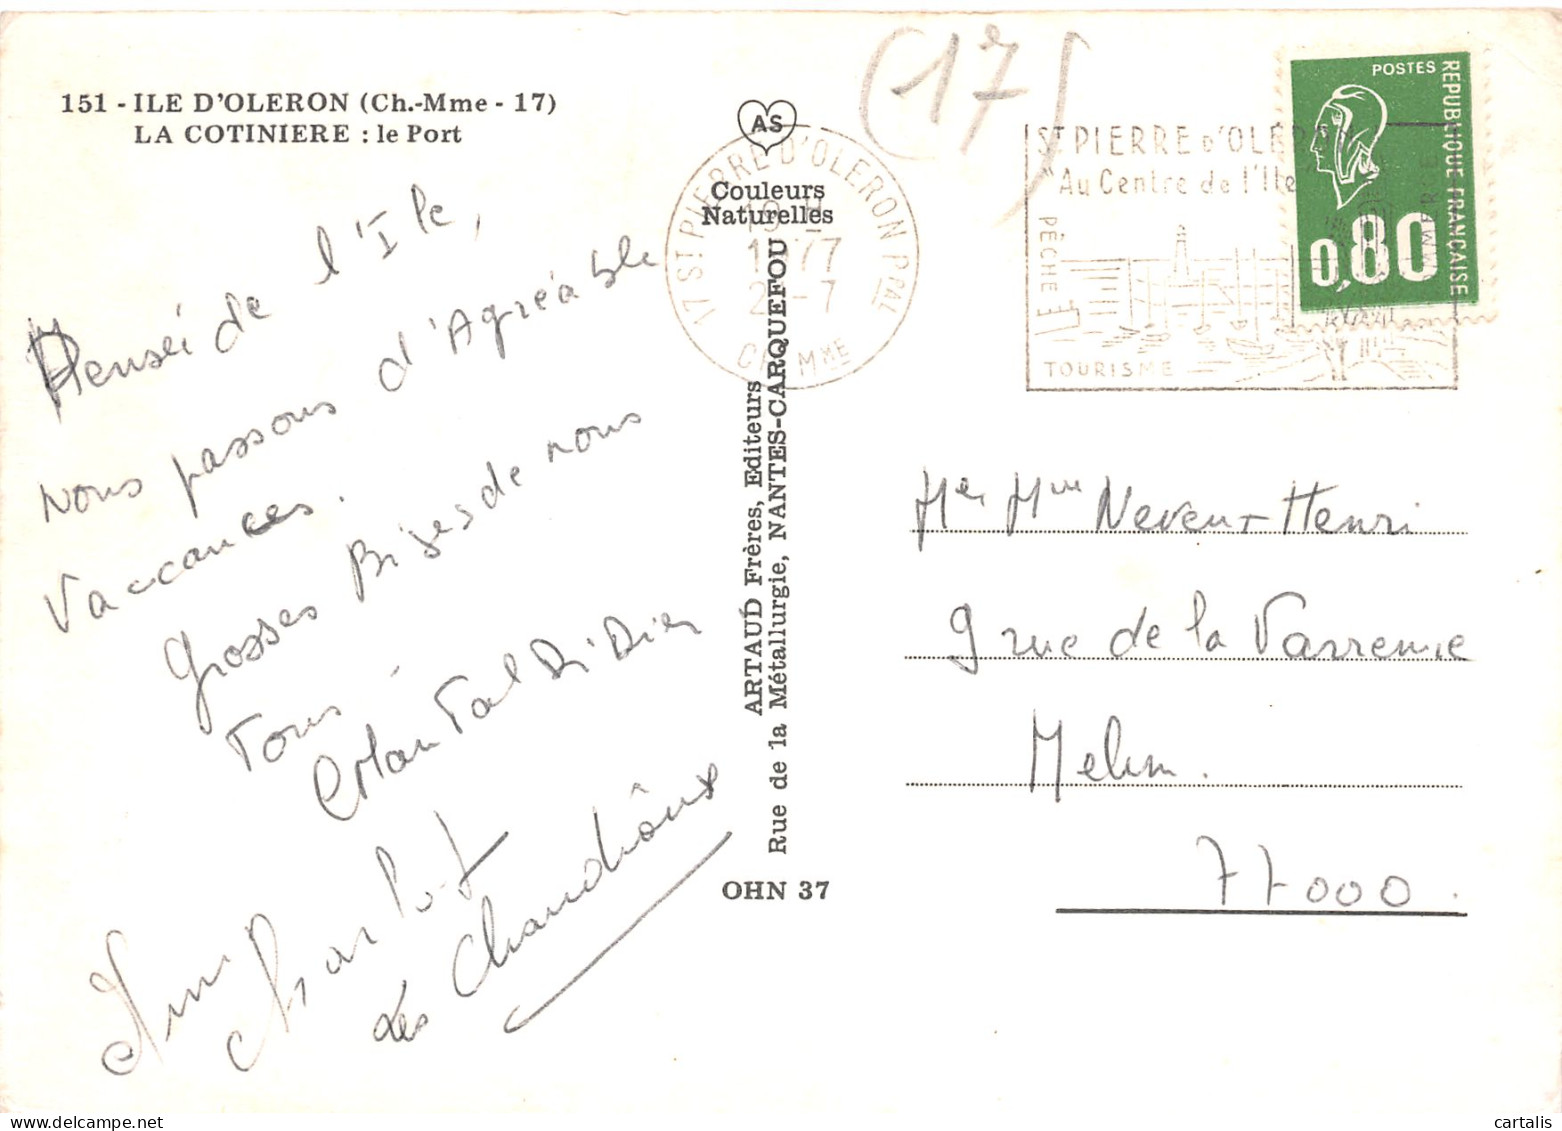 151 - ILE D'OLERON (Ch.-Mme - 17)
LA COTINIERE : le Port
Pensée de l'Ile,
nous passons d'Agréable
Vaccances.
Grosses Bises de nous
Tous.
Chantal Didier
Les Chandiôux
AS
Couleurs
Naturelles
ARTAUD Frères, Editeurs
Rue de la Métallurgie, NANTES-CARQUEFOU
OHN 37
(17)
17 ST PIERRE D'OLERON PPAL
19 H
1977
CH. MME
ST PIERRE D'OLERON
"Au Centre de l'Ile
PÊCHE
TOURISME
POSTES
REPUBLIQUE FRANÇAISE
0,80
Mr Mme Neveux Henri
9 rue de la Varrenne
Melun.
77000.
cartalis
www.delcampe.net